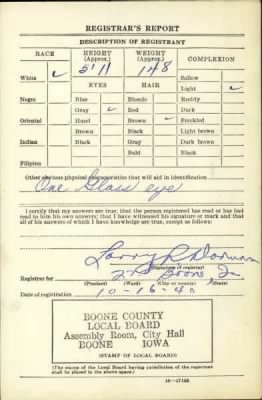 REGISTRAR'S REPORT
DESCRIPTION OF REGISTRANT
RACE HEIGHT (Approx.) WEIGHT (Approx.) COMPLEXION
5'11 148
White ✓ Sallow
EYES HAIR Light ✓
Negro Blue Blonde Ruddy
Gray ✓ Red Dark
Oriental Hazel Brown ✓ Freckled
Brown Black Light brown
Indian Black Gray Dark brown
Bald Black
Filipino
Other obvious physical characteristics that will aid in identification
One Glass eye
I certify that my answers are true; that the person registered has read or has had
read to him his own answers; that I have witnessed his signature or mark and that
all of his answers of which I have knowledge are true, except as follows:
(Signature of registrar)
Registrar for Boone Ia
(Precinct) (Ward) (City or county) (State)
Date of registration 10-16-40
BOONE COUNTY
LOCAL BOARD
Assembly Room, City Hall
BOONE IOWA
(STAMP OF LOCAL BOARD)
(The stamp of the Local Board having jurisdiction of the registrant
shall be placed in the above space.)